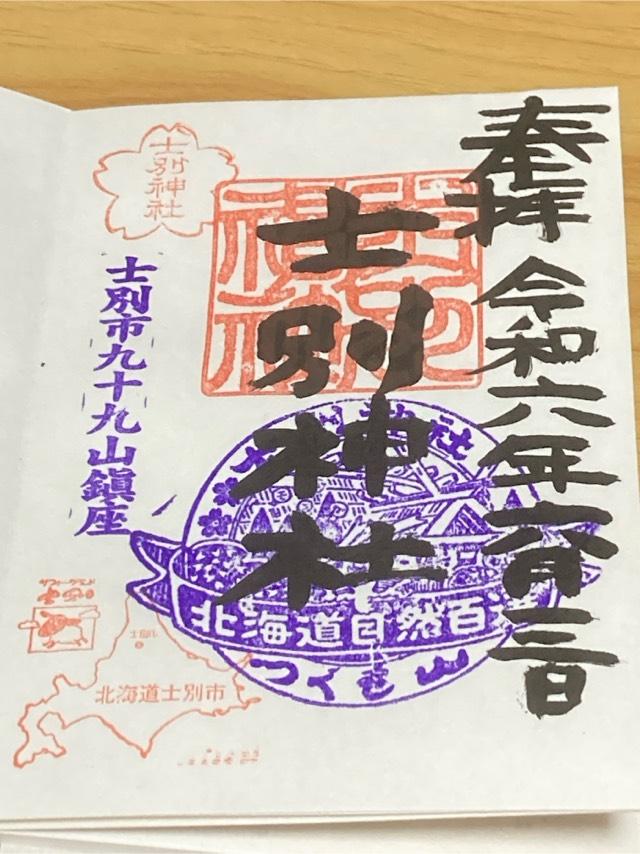 奉拝 令和六年六月三日
士別神社
士別神社
士別市九十九山鎮座
士別神社
北海道自然百選
つくも山
北海道士別市